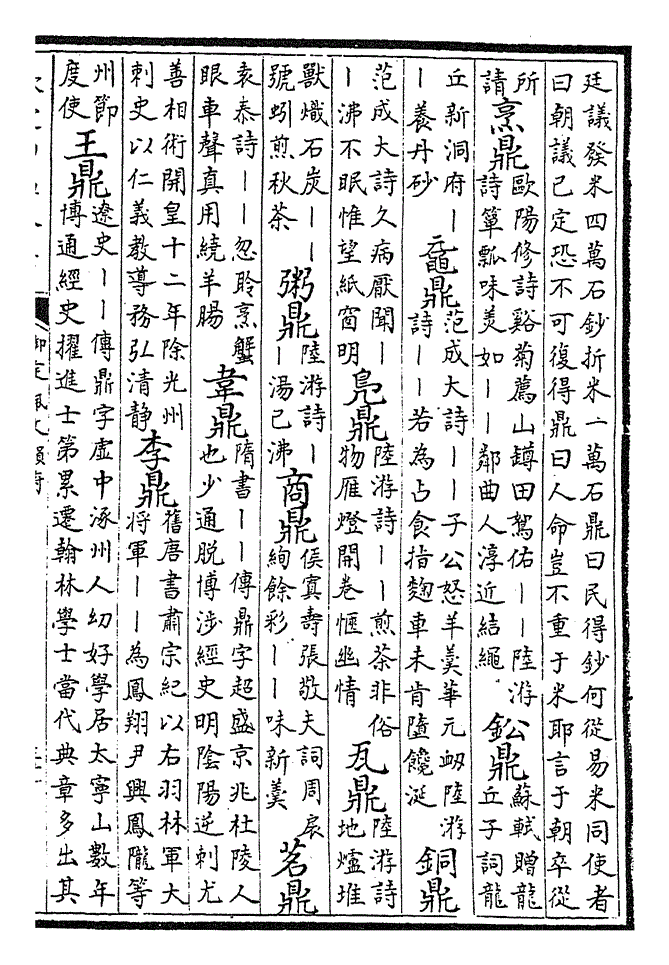 廷議發米四萬石鈔折米一萬石鼎曰民得鈔何從易米同使者
曰朝議已定恐不可復得鼎曰人命豈不重于米耶言于朝卒從
所
請
烹鼎
歐陽修詩谿菊薦山罇田駕佑｜｜陸游
詩簞瓢味美如｜｜鄰曲人淳近結繩
鈆鼎
蘇軾贈龍
丘子詞龍
丘新洞府｜
｜養丹砂
黿鼎
范成大詩｜｜子公怒羊羹華元衂陸游
詩｜｜若為占食指麴車未肯墮饞涎
銅鼎
范成大詩久病厭聞｜
｜沸不眠惟望紙窗明
鳧鼎
陸游詩｜｜煎茶非俗
物雁燈開卷愜幽情
瓦鼎
陸游詩
地爐堆
獸熾石炭｜｜
號蚓煎秋茶
粥鼎
陸游詩｜
｜湯已沸
商鼎
侯寘壽張敬夫詞周扆
絢餘彩｜｜味新羹
茗鼎
袁泰詩｜｜忽聆烹蟹
眼車聲真用繞羊腸
韋鼎
隋書｜｜傳鼎字超盛京兆杜陵人
也少通脱博涉經史明陰陽逆刺尤
善相術開皇十二年除光州
刺史以仁義教導務弘清静
李鼎
舊唐書肅宗紀以右羽林軍大
將軍｜｜為鳳翔尹興鳳隴等
州節
度使
王鼎
遼史｜｜傳鼎字虛中涿州人幼好學居太寧山數年
博通經史擢進士第累遷翰林學士當代典章多出其